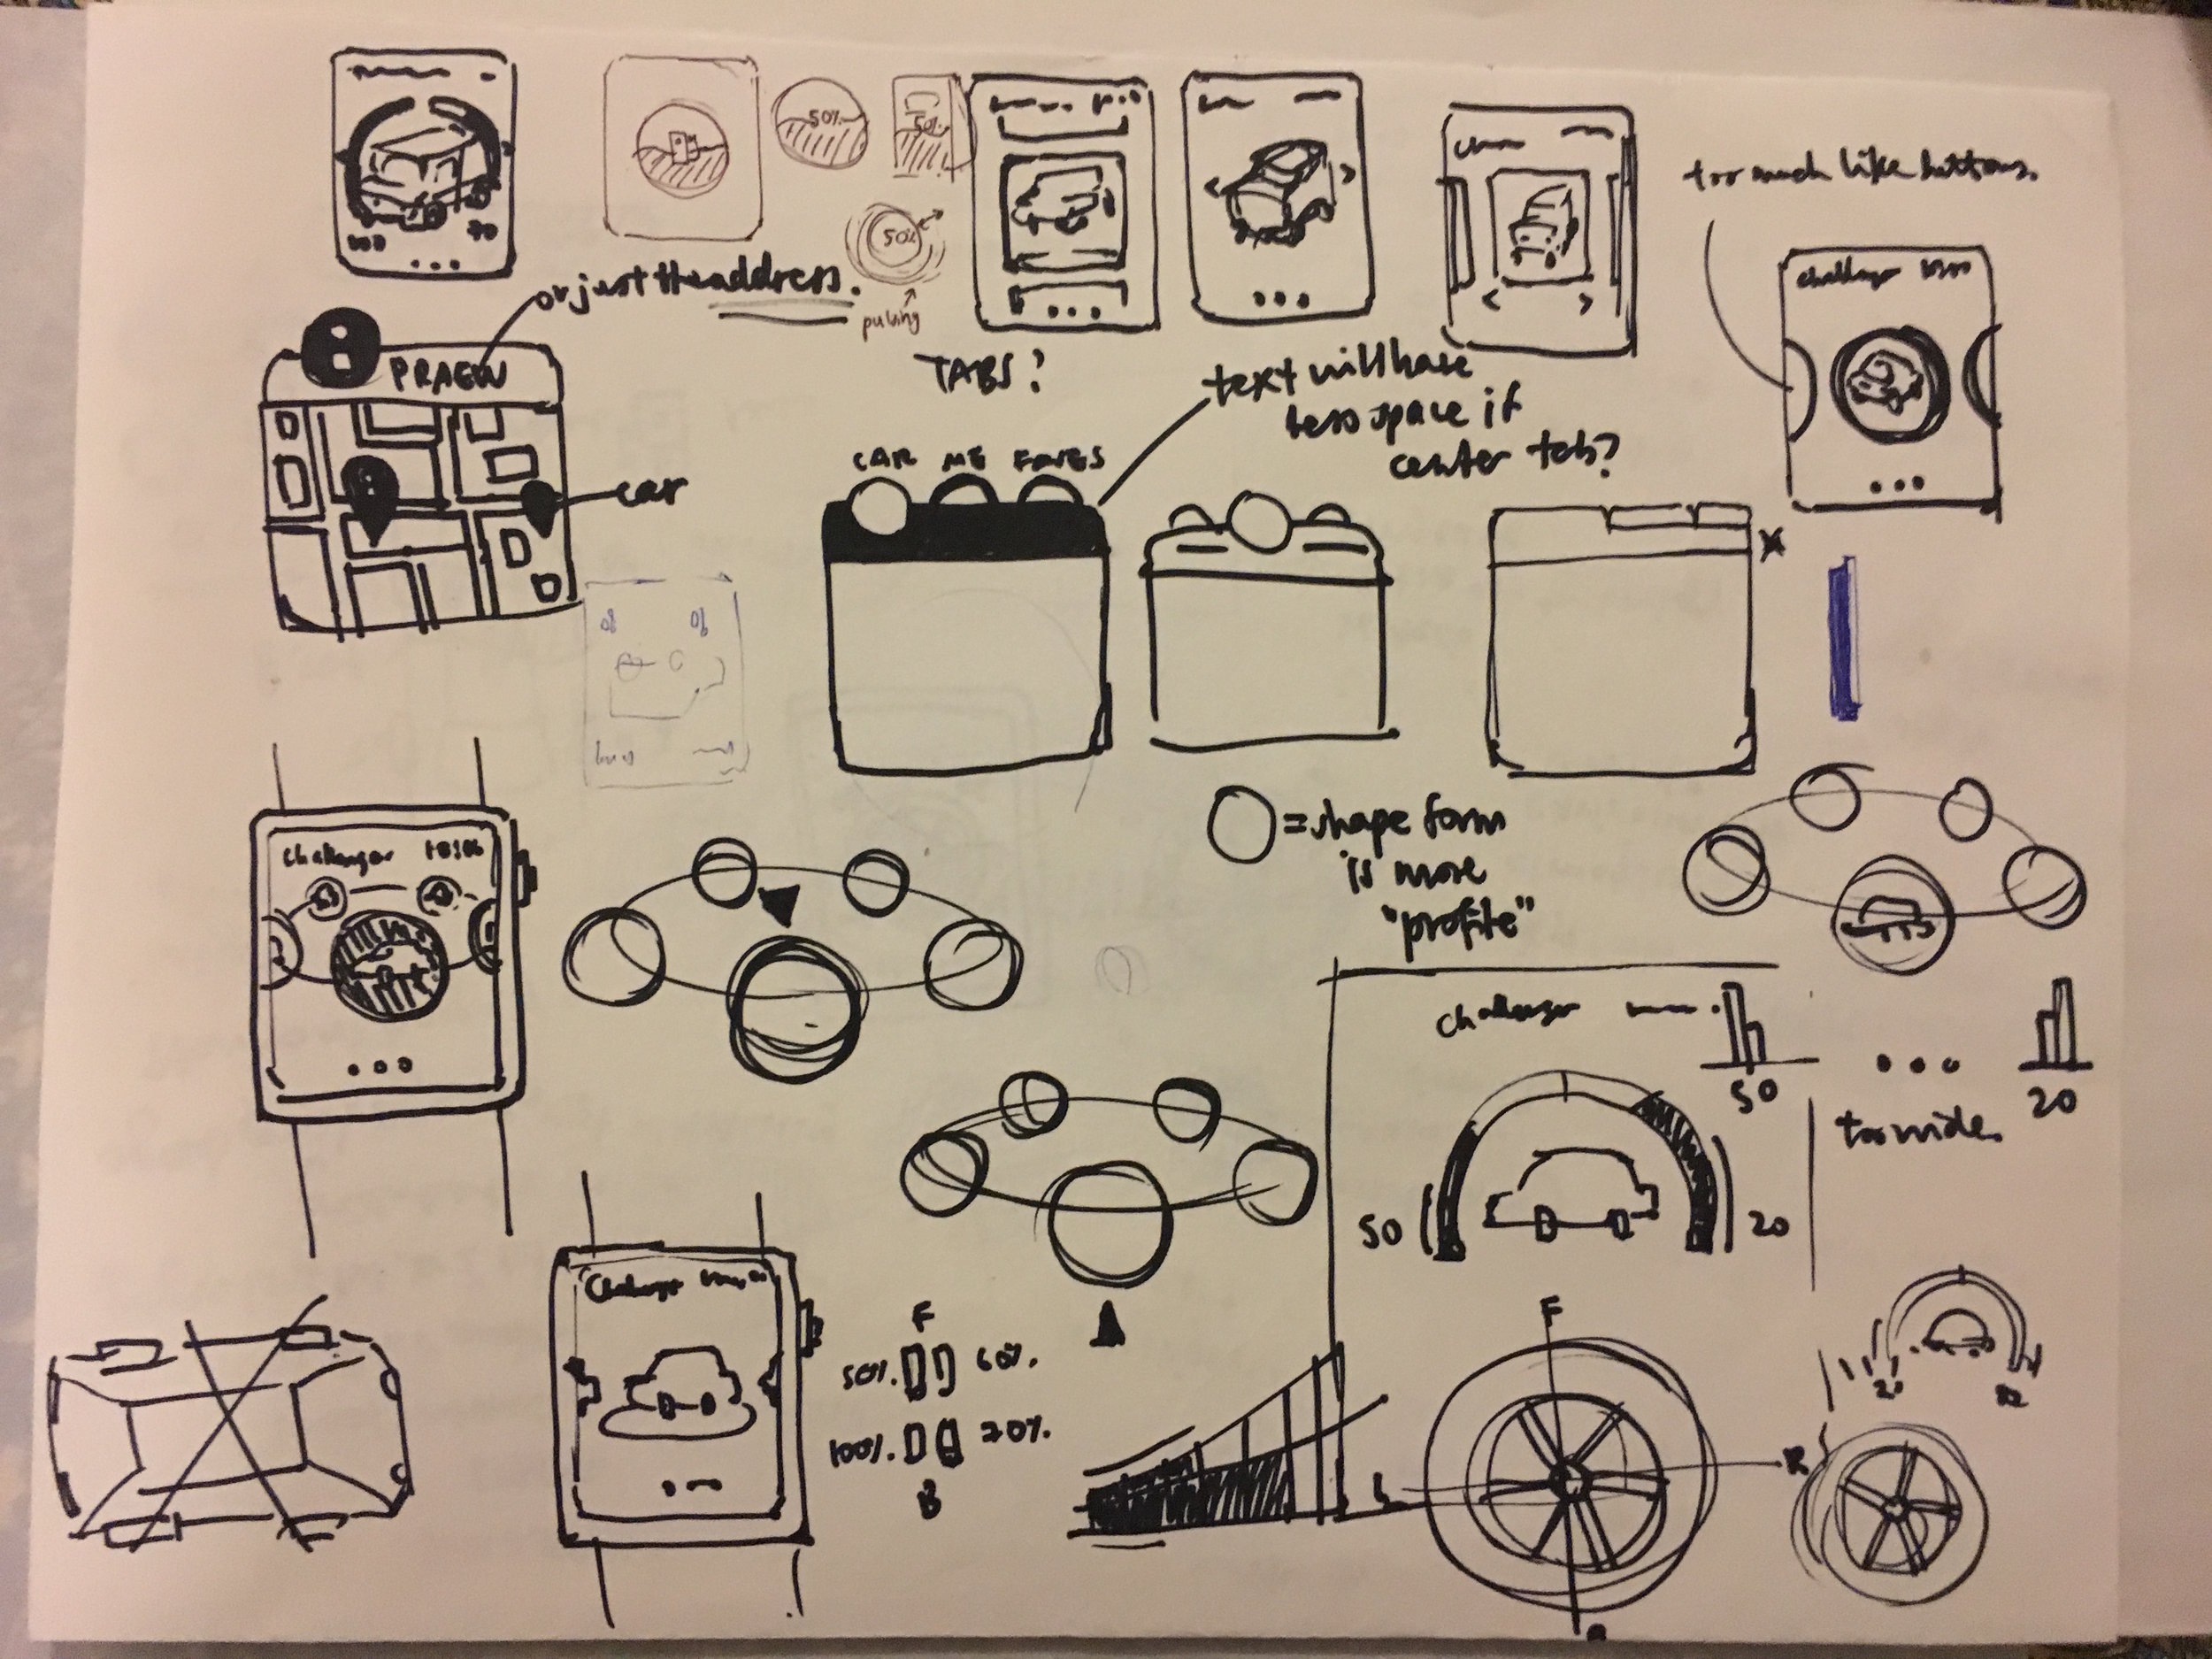 50%
50%
50%
pulsing
or just the address.
too much like buttons.
challenger
PRAEW
TABS?
text will have
less space if
center tab?
CAR ME FAVES
car
Challenger 10:06
= shape form
is more
"profile"
challenger
50
20
too wide.
50
20
Challenger
F
50% 60%.
100% 20%.
B
F
L
R
B
20